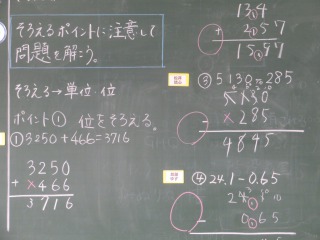 そろえるポイントに注意して
問題を解こう。
そろえる→単位・位
ポイント① 位をそろえる。
①3250+466=3716
3250
+ 466
3716
13.4
+ 2.57
15.97
③5130-285
5130
- 285
4845
④24.1-0.65
0.65